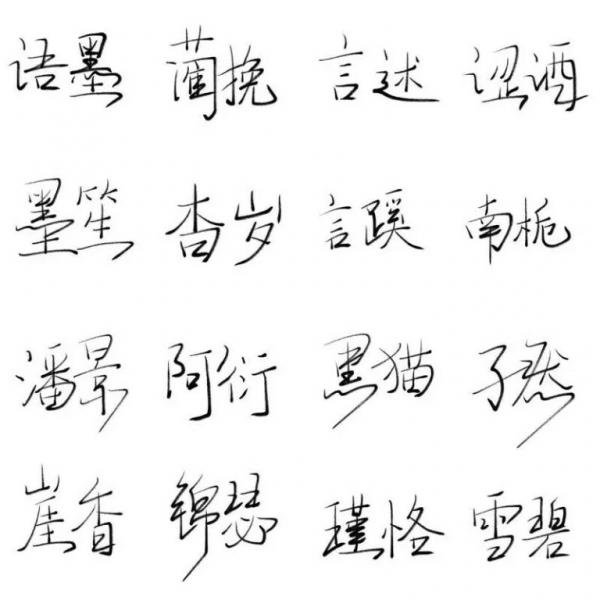 语墨 蔺挽 言述 涩酒
墨笙 杳岁 言蹊 南栀
潘景 阿衍 黑猫 子悐
崖香 锦瑟 瑾恪 雪碧